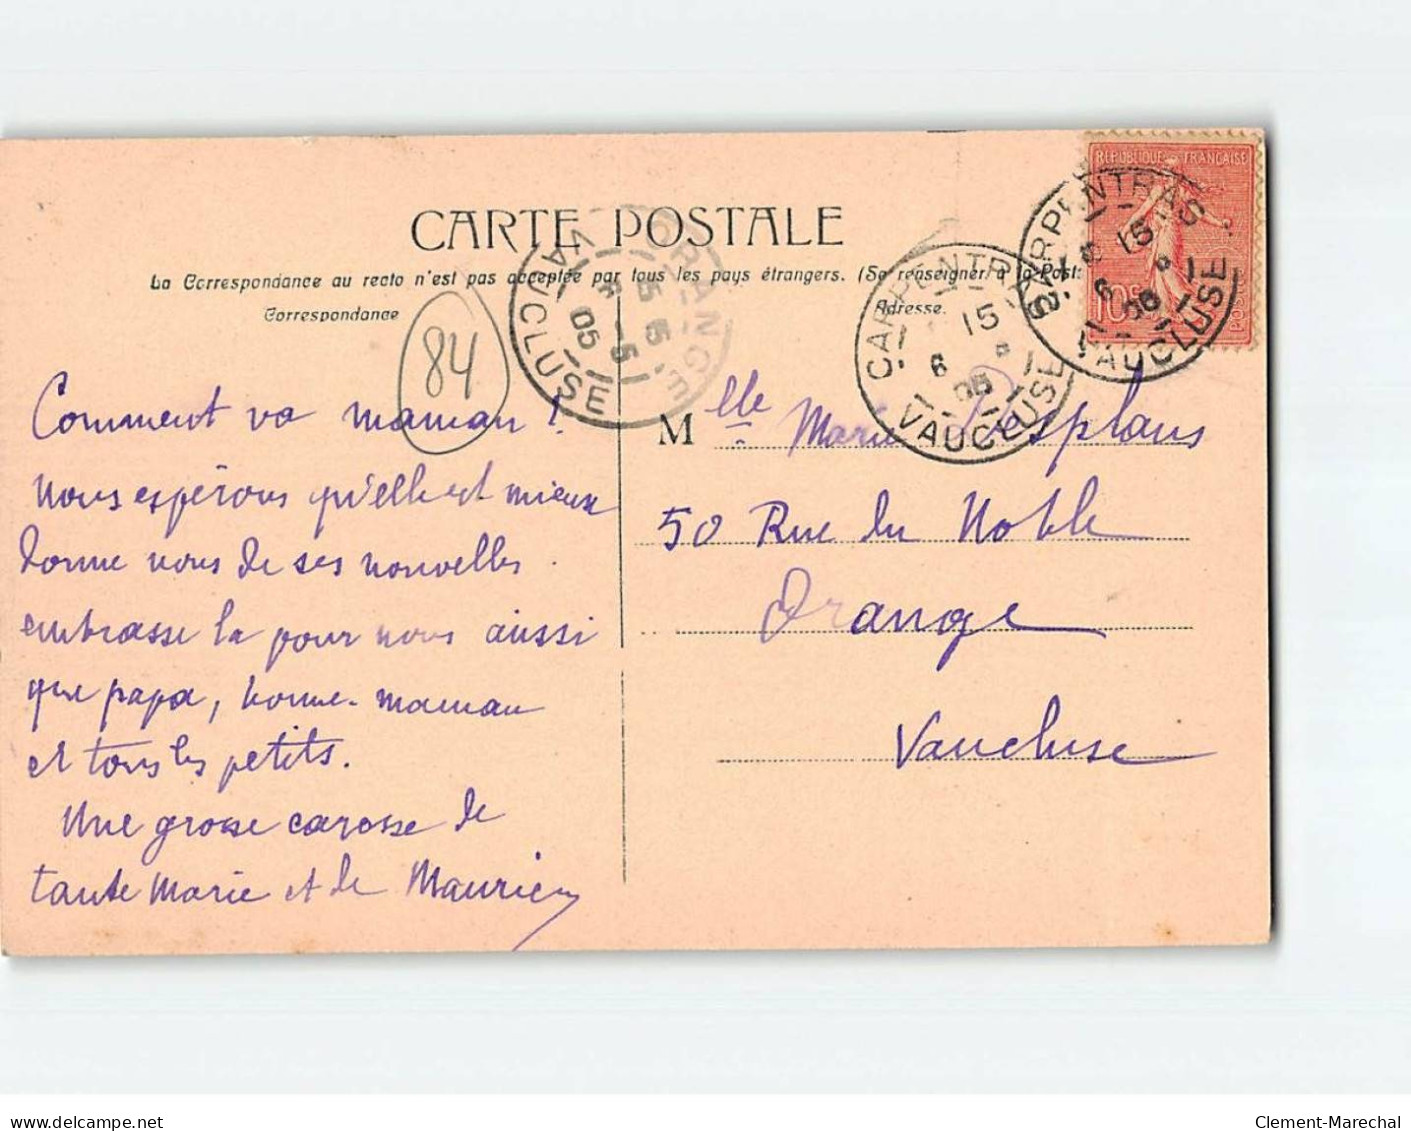 CARTE POSTALE
La Correspondance au recto n'est pas acceptée par tous les pays étrangers. (Se renseigner à la Poste
Correspondance
Adresse.
84
RÉPUBLIQUE FRANÇAISE
10c
POSTES
CARPENTRAS
15
6
05
VAUCLUSE
CARPENTRAS
15
6
05
VAUCLUSE
ORANGE
15 15
6 - 5
05
VAUCLUSE
Comment va maman?
Nous espérons qu'elle est mieux
donne nous de ses nouvelles.
embrasse la pour nous aussi
que papa, bonne-maman
et tous les petits.
Une grosse caresse de
tante Marie et de Maurice
Mlle Marie Desplans
50 Rue du Noble
Orange
Vaucluse
Clement-Marechal
delcampe.net